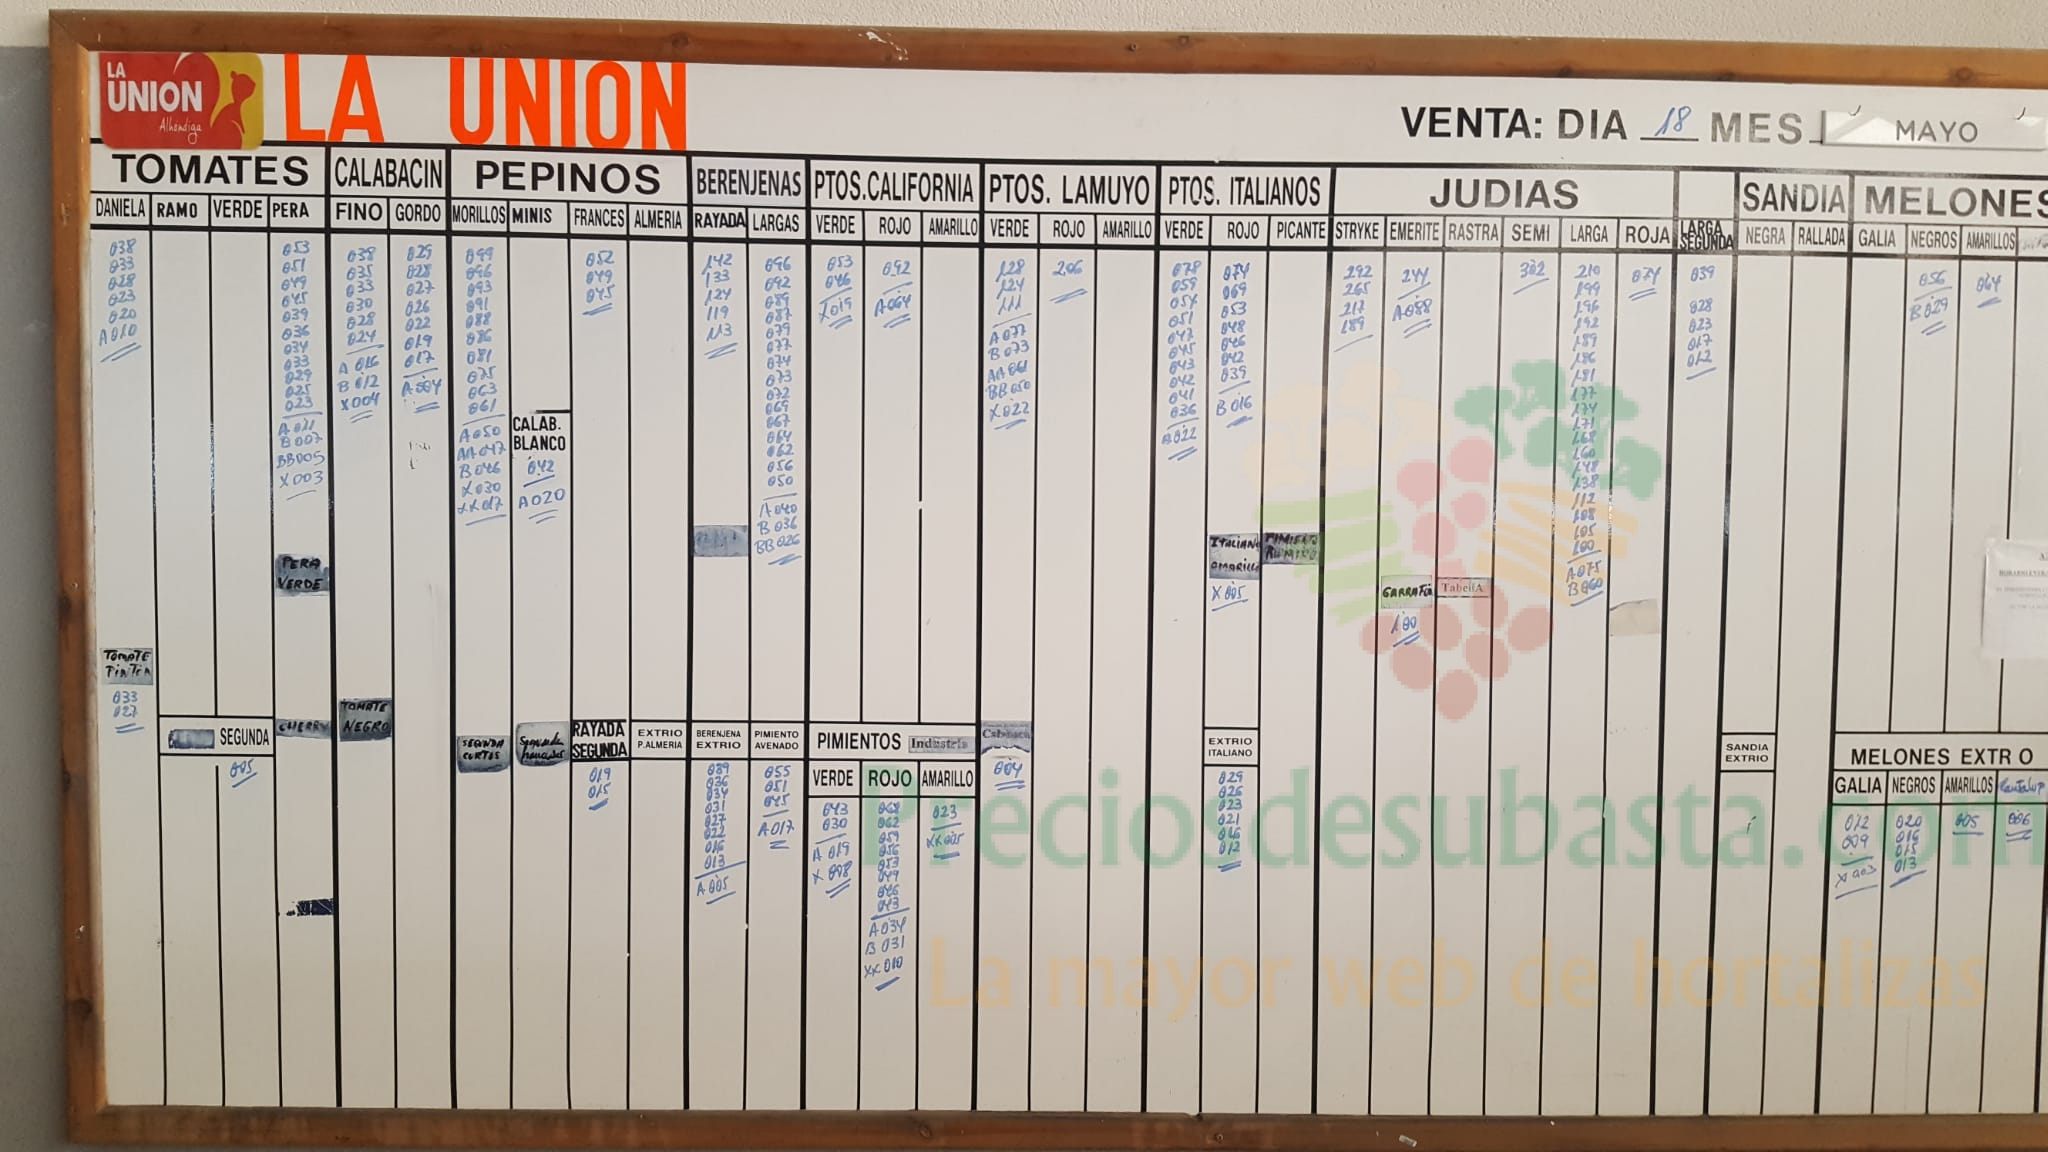 LA UNION Alhóndiga
LA UNION
VENTA: DIA 18 MES MAYO
TOMATES
DANELA RAMO VERDE PERA
CALABACIN
FINO GORDO
PEPINOS
MORILLOS MINIS FRANCES ALMERIA
BERENJENAS
RAYADA LARGAS
PTOS.CALIFORNIA
VERDE ROJO AMARILLO
PTOS. LAMUYO
VERDE ROJO AMARILLO
PTOS. ITALIANOS
VERDE ROJO PICANTE
JUDIAS
STRYKE EMERITE RASTRA SEMI LARGA ROJA
LARGA SEGUNDA
SANDIA
NEGRA RALLADA
MELONES
GALIA NEGROS AMARILLOS
038
033
028
023
020
A010
053
051
049
045
039
036
034
033
029
025
023
A011
B007
BB005
X003
038
035
033
030
028
024
A016
B012
X004
029
028
027
026
022
019
017
A004
099
096
093
091
088
086
081
075
063
061
A050
AA047
B046
X030
XX017
CALAB.
BLANCO
042
A020
052
049
045
142
133
124
119
113
096
092
089
087
079
077
074
073
072
069
067
064
062
056
050
A040
B036
BB026
053
046
X019
092
A064
128
124
111
A077
B073
AA061
BB050
X022
206
078
059
054
051
047
045
043
042
041
036
A022
074
069
053
048
046
042
039
B016
292
265
217
189
244
A088
302
210
199
196
192
189
186
181
177
174
171
168
160
148
138
112
108
105
100
A075
B060
074
039
028
023
017
012
056
B029
064
PERA
VERDE
ITALIANO
AMARILLO
X005
PIMIENTO
GARRAFA
100
TabellA
TOMATE
PINTON
033
027
SEGUNDA
005
CHERRY
TOMATE
NEGRO
SEGUNDA
CORTOS
Segunda
RAYADA
SEGUNDA
019
015
EXTRIO
P.ALMERIA
BERENJENA
EXTRIO
039
036
034
031
027
022
016
013
A005
PIMIENTO
AVENADO
055
051
045
A017
PIMIENTOS Industria
VERDE ROJO AMARILLO
043
030
A019
X008
068
062
059
056
053
049
046
043
A034
B031
XX010
023
XX005
Calabaza
004
EXTRIO
ITALIANO
029
026
023
021
016
012
SANDIA
EXTRIO
MELONES EXTR O
GALIA NEGROS AMARILLOS Cantalup
012
009
X003
020
016
015
013
005
006
Preciosdesubasta.com
La mayor web de hortalizas